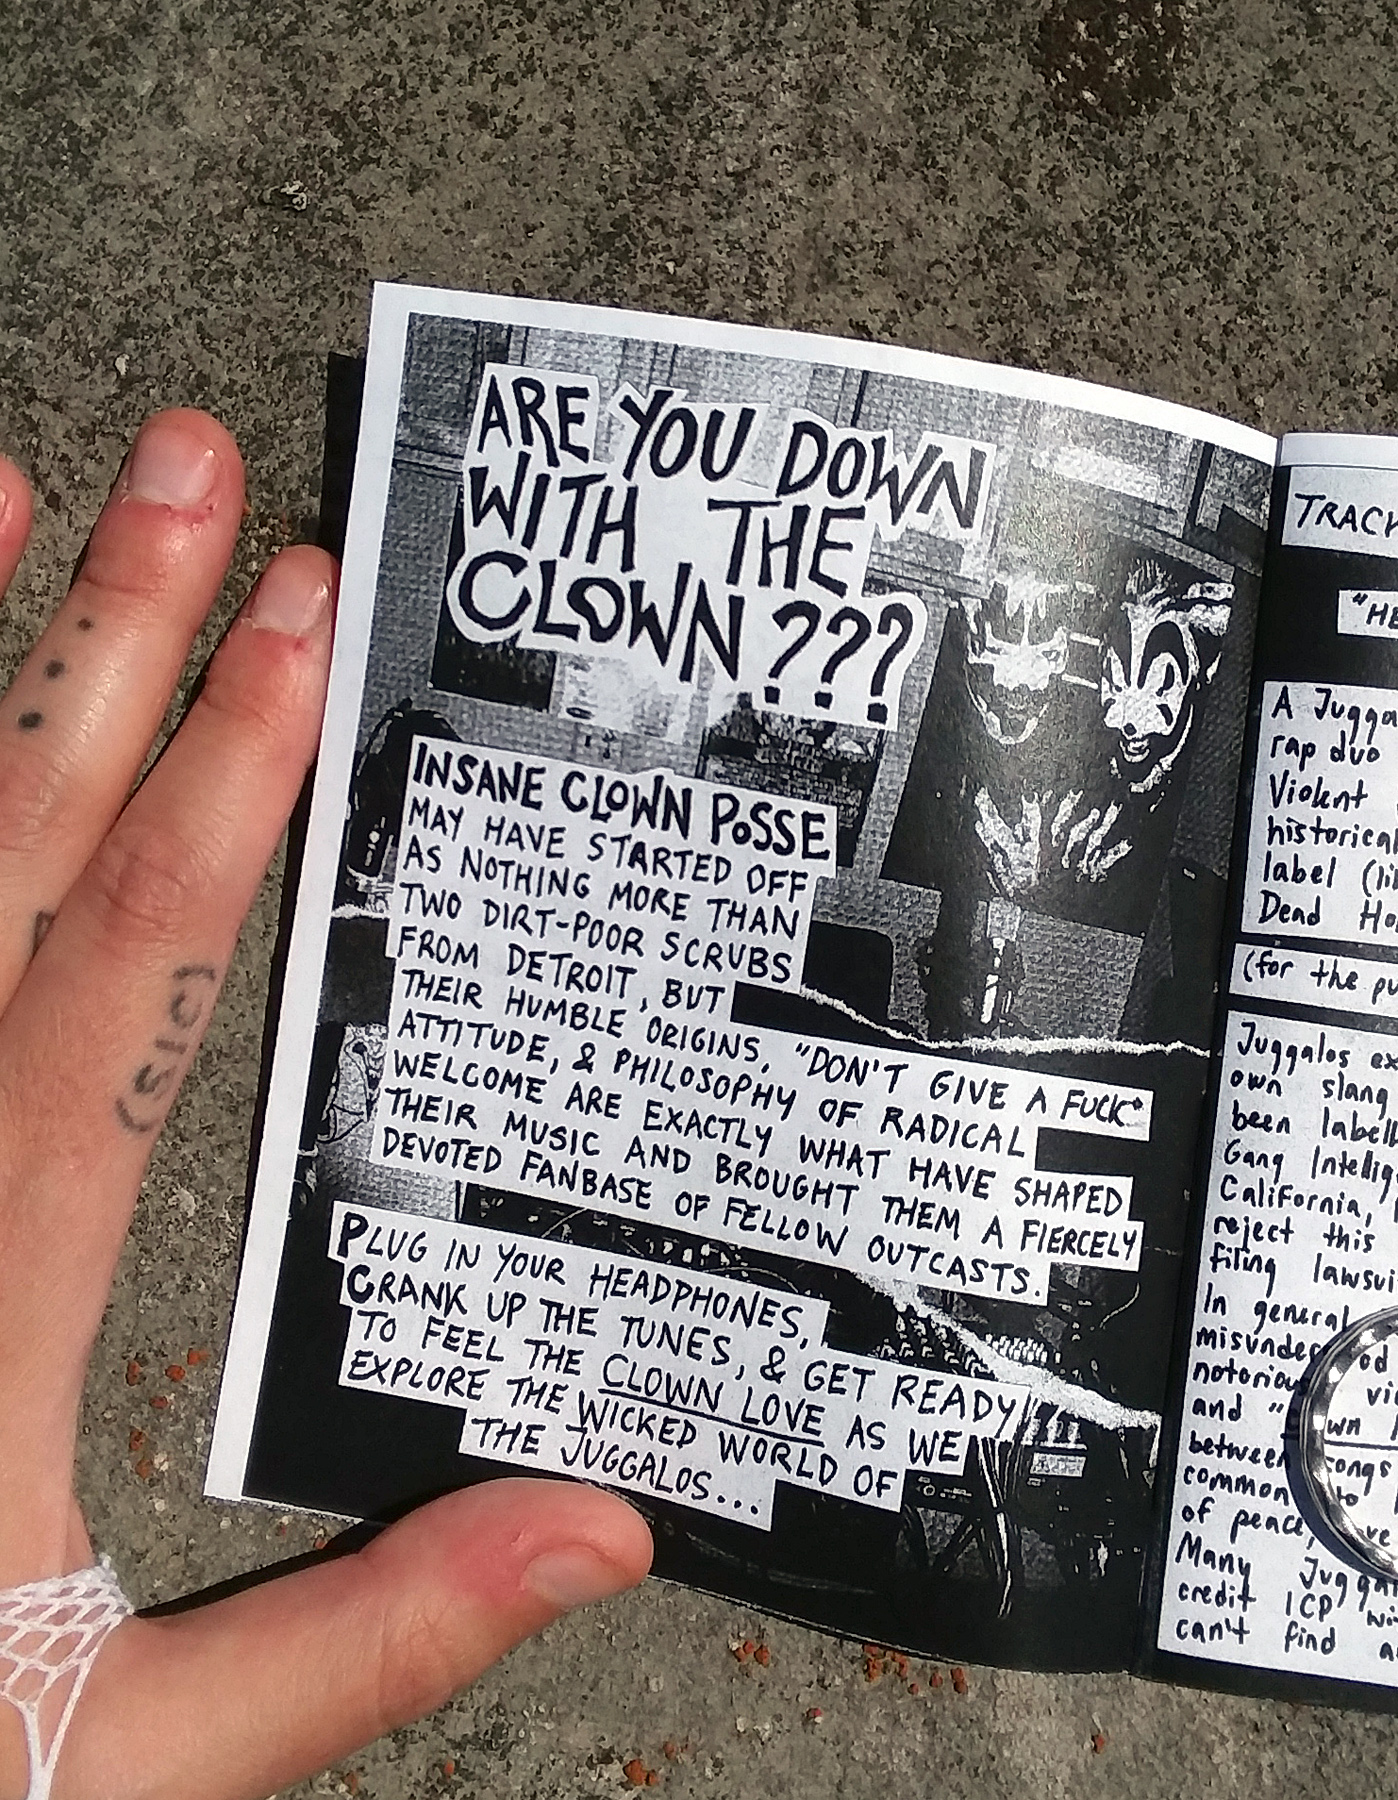 ARE YOU DOWN
WITH THE
CLOWN???
INSANE CLOWN POSSE
MAY HAVE STARTED OFF
AS NOTHING MORE THAN
TWO DIRT-POOR SCRUBS
FROM DETROIT, BUT
THEIR HUMBLE ORIGINS, "DON'T GIVE A FUCK"
ATTITUDE, & PHILOSOPHY OF RADICAL
WELCOME ARE EXACTLY WHAT HAVE SHAPED
THEIR MUSIC AND BROUGHT THEM A FIERCELY
DEVOTED FANBASE OF FELLOW OUTCASTS.
PLUG IN YOUR HEADPHONES,
CRANK UP THE TUNES, & GET READY
TO FEEL THE CLOWN LOVE AS WE
EXPLORE THE WICKED WORLD OF
THE JUGGALOS...
(SIC)
A
rap duo
Violent
historical
label
Dead
(for the
Juggalos
own slang
been
Gang
California,
reject this
filing
In general
and "
between songs
common to
of peace,
Many
credit ICP
can't find